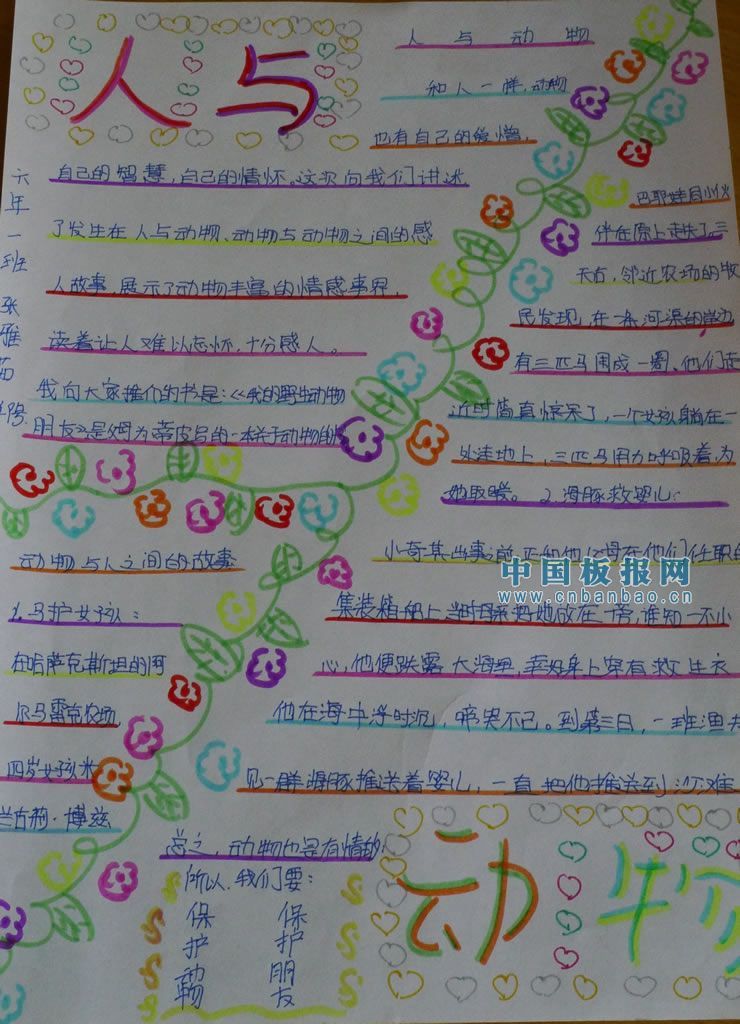 人与
人与动物
和人一样,动物
也有自己的爱憎,
自己的智慧,自己的情怀。这次向我们讲述
了发生在人与动物、动物与动物之间的感
人故事,展示了动物丰富的情感事界,
读着让人难以忘怀,十分感人。
我向大家推介的书是:《我的野生动物
朋友》是姆为蒂皮吕的一本关于动物的
六年一班
张雅茹
动物与人之间的故事
1.马护女孩:
在哈萨克斯坦的阿
尔马雷克农场
四岁女孩米
兰古莉·博兹
巴耶娃同小伙
伴在原上走失了。三
天后,邻近农场的牧
民发现,在一条河渠的岸边
有三匹马围成一圈、他们走
近时简直惊呆了,一个女孩躺在一
处洼地上,三匹马用力呼吸着,为
她取暖。2.海豚救婴儿:
小奇其出事之前,正和他父母在他们任职的
集装箱船上,当时母亲把她放在一旁,谁知一不小
心,他便跌露大海里,幸好身上穿有救生衣
他在海中浮时沉,啼哭不已。到第三日,一班渔夫
见一群海豚推送着婴儿,一直把他推送到沙滩
总之,动物也是有情的,
所以,我们要:
保护动物
保护朋友
动物
中国板报网
www.cnbanbao.cn